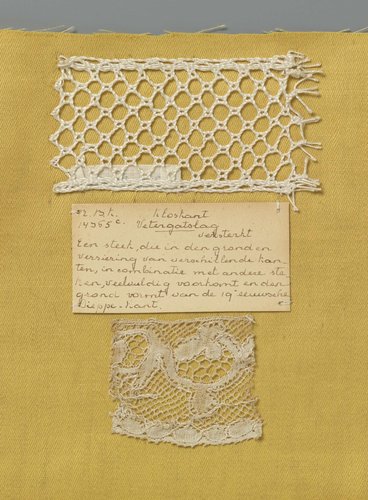 Kloskant
14965c. Vetergatslag
versterkt
Een steek, die in den grond en
versiering van verschillende kan-
ten, in combinatie met andere ste
ken veelvuldig voorkomt en den
grond vormt van de 19e eeuwsche
Dieppe-kant.